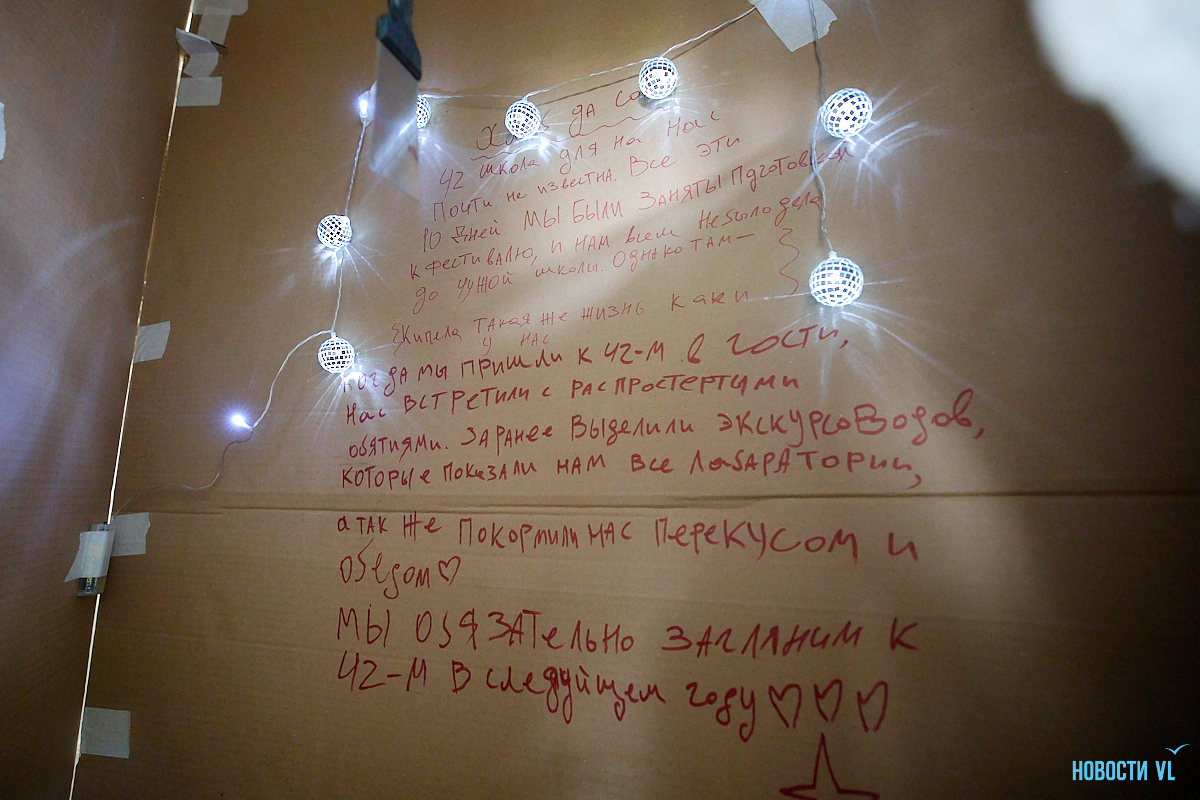 да
42 школа для на нас
Почти не известна. Все эти
10 дней мы были заняты пдготовкой
к фестивалю, и нам всем небыло дела
до чужой школы. Однако там —
кипела такая же жизнь как и
у нас
Когда мы пришли к 42-м в гости,
нас встретили с распростертыми
обятиями. Заранее выделили экскурсоводов,
которые показали нам все лабараториии,
а так же покормили нас перекусом и
обедом♡
Мы обязательно загляним к
42-м в следуйщем году♡♡♡
НОВОСТИ VL